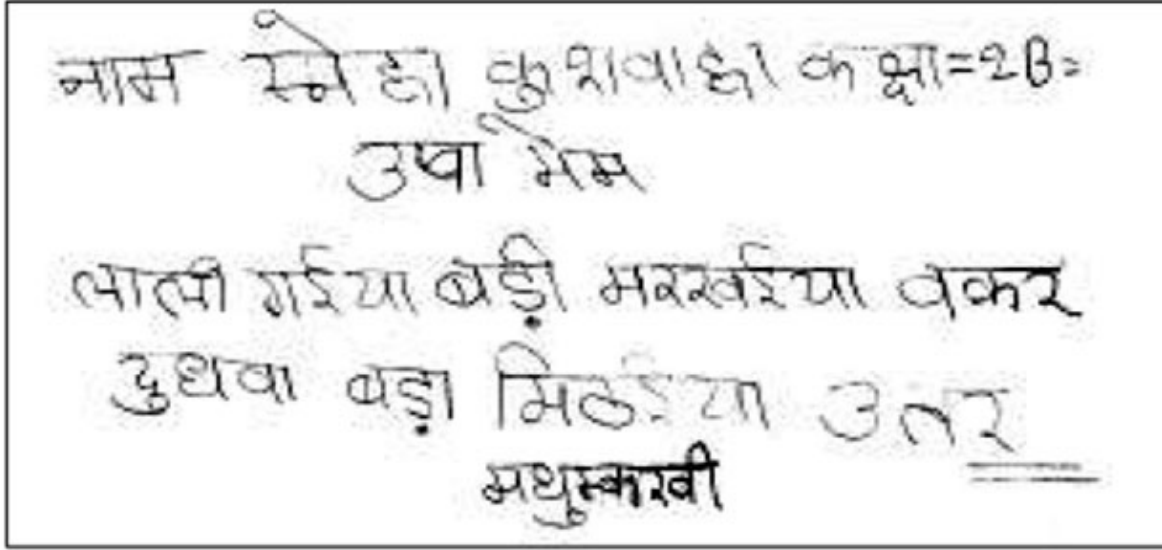 नाम स्नेहा कुशवाहा कक्षा=2B=
उषा मेम
लाली गईया बड़ी मरखईया वकर
दुधवा बड़ा मिठईया उत्तर
मधुमक्खी